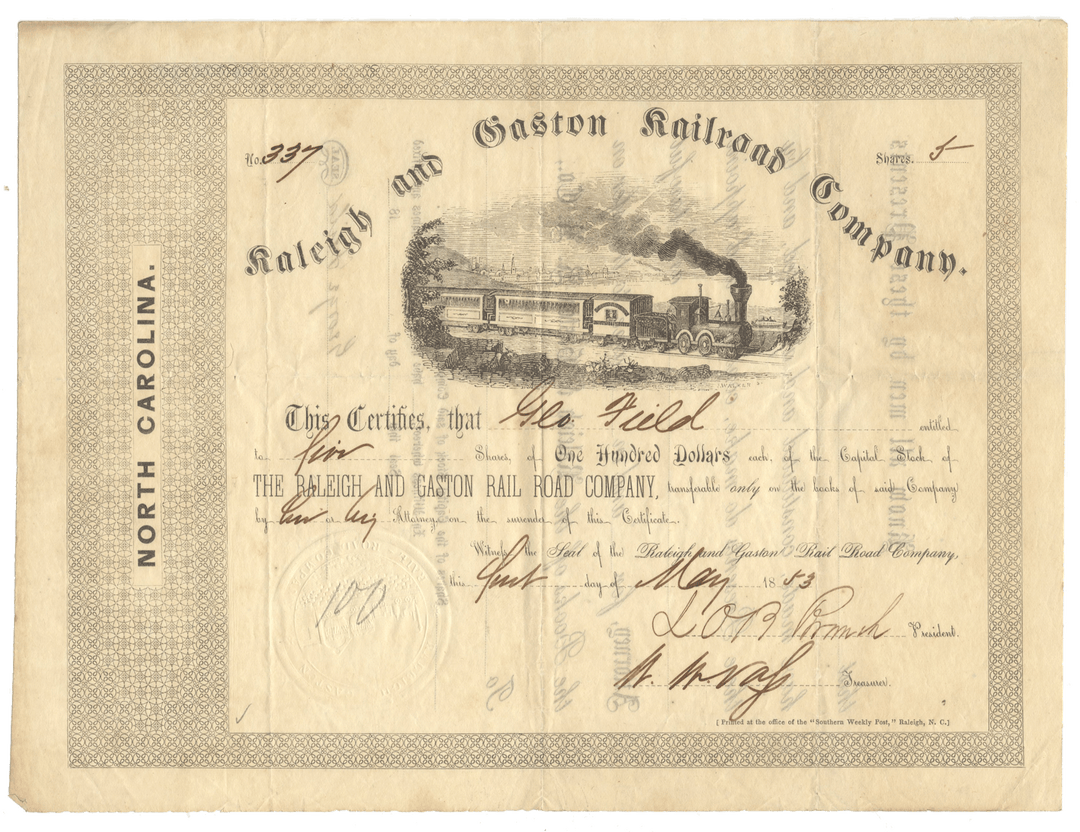 NORTH CAROLINA.
Raleigh and Gaston Railroad Company.
No. 337
Shares. 5
This Certifies, that Geo. Field entitled
to five Shares, of One Hundred Dollars each, of the Capital Stock of
THE RALEIGH AND GASTON RAIL ROAD COMPANY, transferable only on the books of said Company
by him or his Attorney on the surrender of this Certificate.
Witness the Seal of the Raleigh and Gaston Rail Road Company,
this first day of May 1853
100
L O B Branch President.
W. W. Vass Treasurer.
[Printed at the office of the "Southern Weekly Post," Raleigh, N. C.]